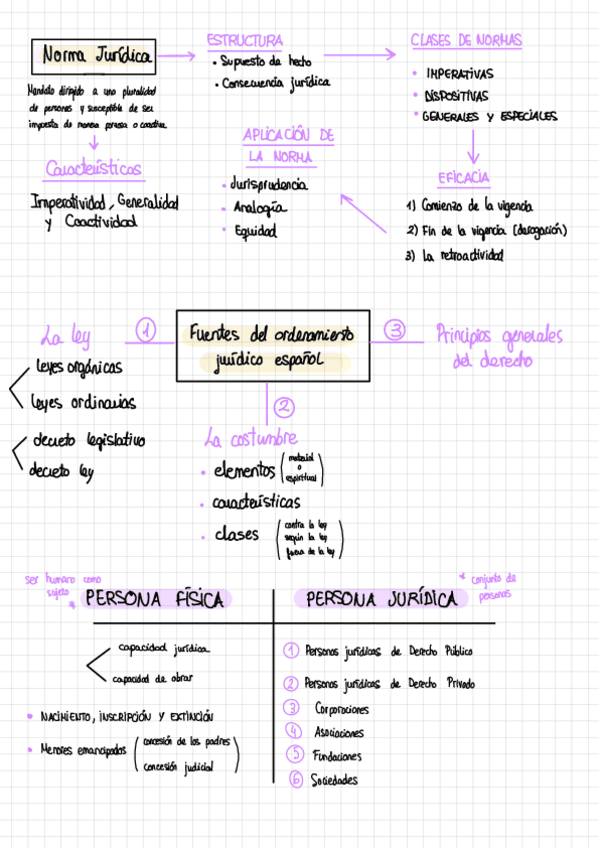 Norma Jurídica
Mandato dirigido a una pluralidad
de personas y susceptible de ser
impuesta de manera forzosa o coactiva.
Características
Imperatividad, Generalidad
y Coactividad
ESTRUCTURA
• Supuesto de hecho
• Consecuencia jurídica
CLASES DE NORMAS
• IMPERATIVAS
• DISPOSITIVAS
• GENERALES Y ESPECIALES
EFICACIA
1) Comienzo de la vigencia
2) Fin de la vigencia (derogación)
3) La retroactividad
APLICACIÓN DE
LA NORMA
• Jurisprudencia
• Analogía
• Equidad
Fuentes del ordenamiento
jurídico español
1
La ley
leyes orgánicas
leyes ordinarias
decreto legislativo
decreto ley
2
La costumbre
• elementos (material
o
espiritual)
• características
• clases (contra la ley
según la ley
fuera de la ley)
3
Principios generales
del derecho
ser humano como
sujeto *
PERSONA FÍSICA
capacidad jurídica
capacidad de obrar
• NACIMIENTO, INSCRIPCIÓN Y EXTINCIÓN
• Menores emancipados (concesión de los padres
concesión judicial)
* conjunto de
personas
PERSONA JURÍDICA
1 Personas jurídicas de Derecho Público
2 Personas jurídicas de Derecho Privado
3 Corporaciones
4 Asociaciones
5 Fundaciones
6 Sociedades